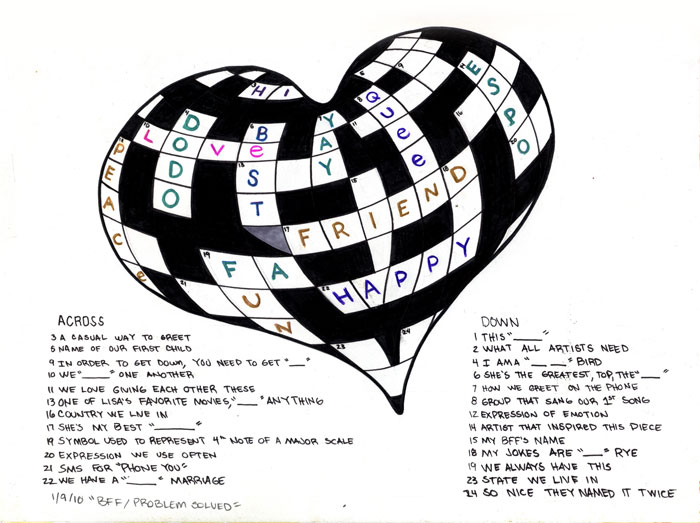 HI
QUEEN
ESPO
DODO
LOVE
BEST
YAY
PEACE
FRIEND
FA
FUN
HAPPY
ACROSS
3 A CASUAL WAY TO GREET
5 NAME OF OUR FIRST CHILD
9 IN ORDER TO GET DOWN, YOU NEED TO GET "__"
10 WE "____" ONE ANOTHER
11 WE LOVE GIVING EACH OTHER THESE
13 ONE OF LISA'S FAVORITE MOVIES, "___" ANYTHING
16 COUNTRY WE LIVE IN
17 SHE'S MY BEST "______"
19 SYMBOL USED TO REPRESENT 4TH NOTE OF A MAJOR SCALE
20 EXPRESSION WE USE OFTEN
21 SMS FOR "PHONE YOU"
22 WE HAVE A "_____" MARRIAGE
1/9/10 "BFF/PROBLEM SOLVED"
DOWN
1 THIS "_____"
2 WHAT ALL ARTISTS NEED
4 I AM A "__ __" BIRD
6 SHE'S THE GREATEST, TOP, THE "____"
7 HOW WE GREET ON THE PHONE
8 GROUP THAT SANG OUR 1ST SONG
12 EXPRESSION OF EMOTION
14 ARTIST THAT INSPIRED THIS PIECE
15 MY BFF'S NAME
18 MY JOKES ARE "___" RYE
19 WE ALWAYS HAVE THIS
23 STATE WE LIVE IN
24 SO NICE THEY NAMED IT TWICE